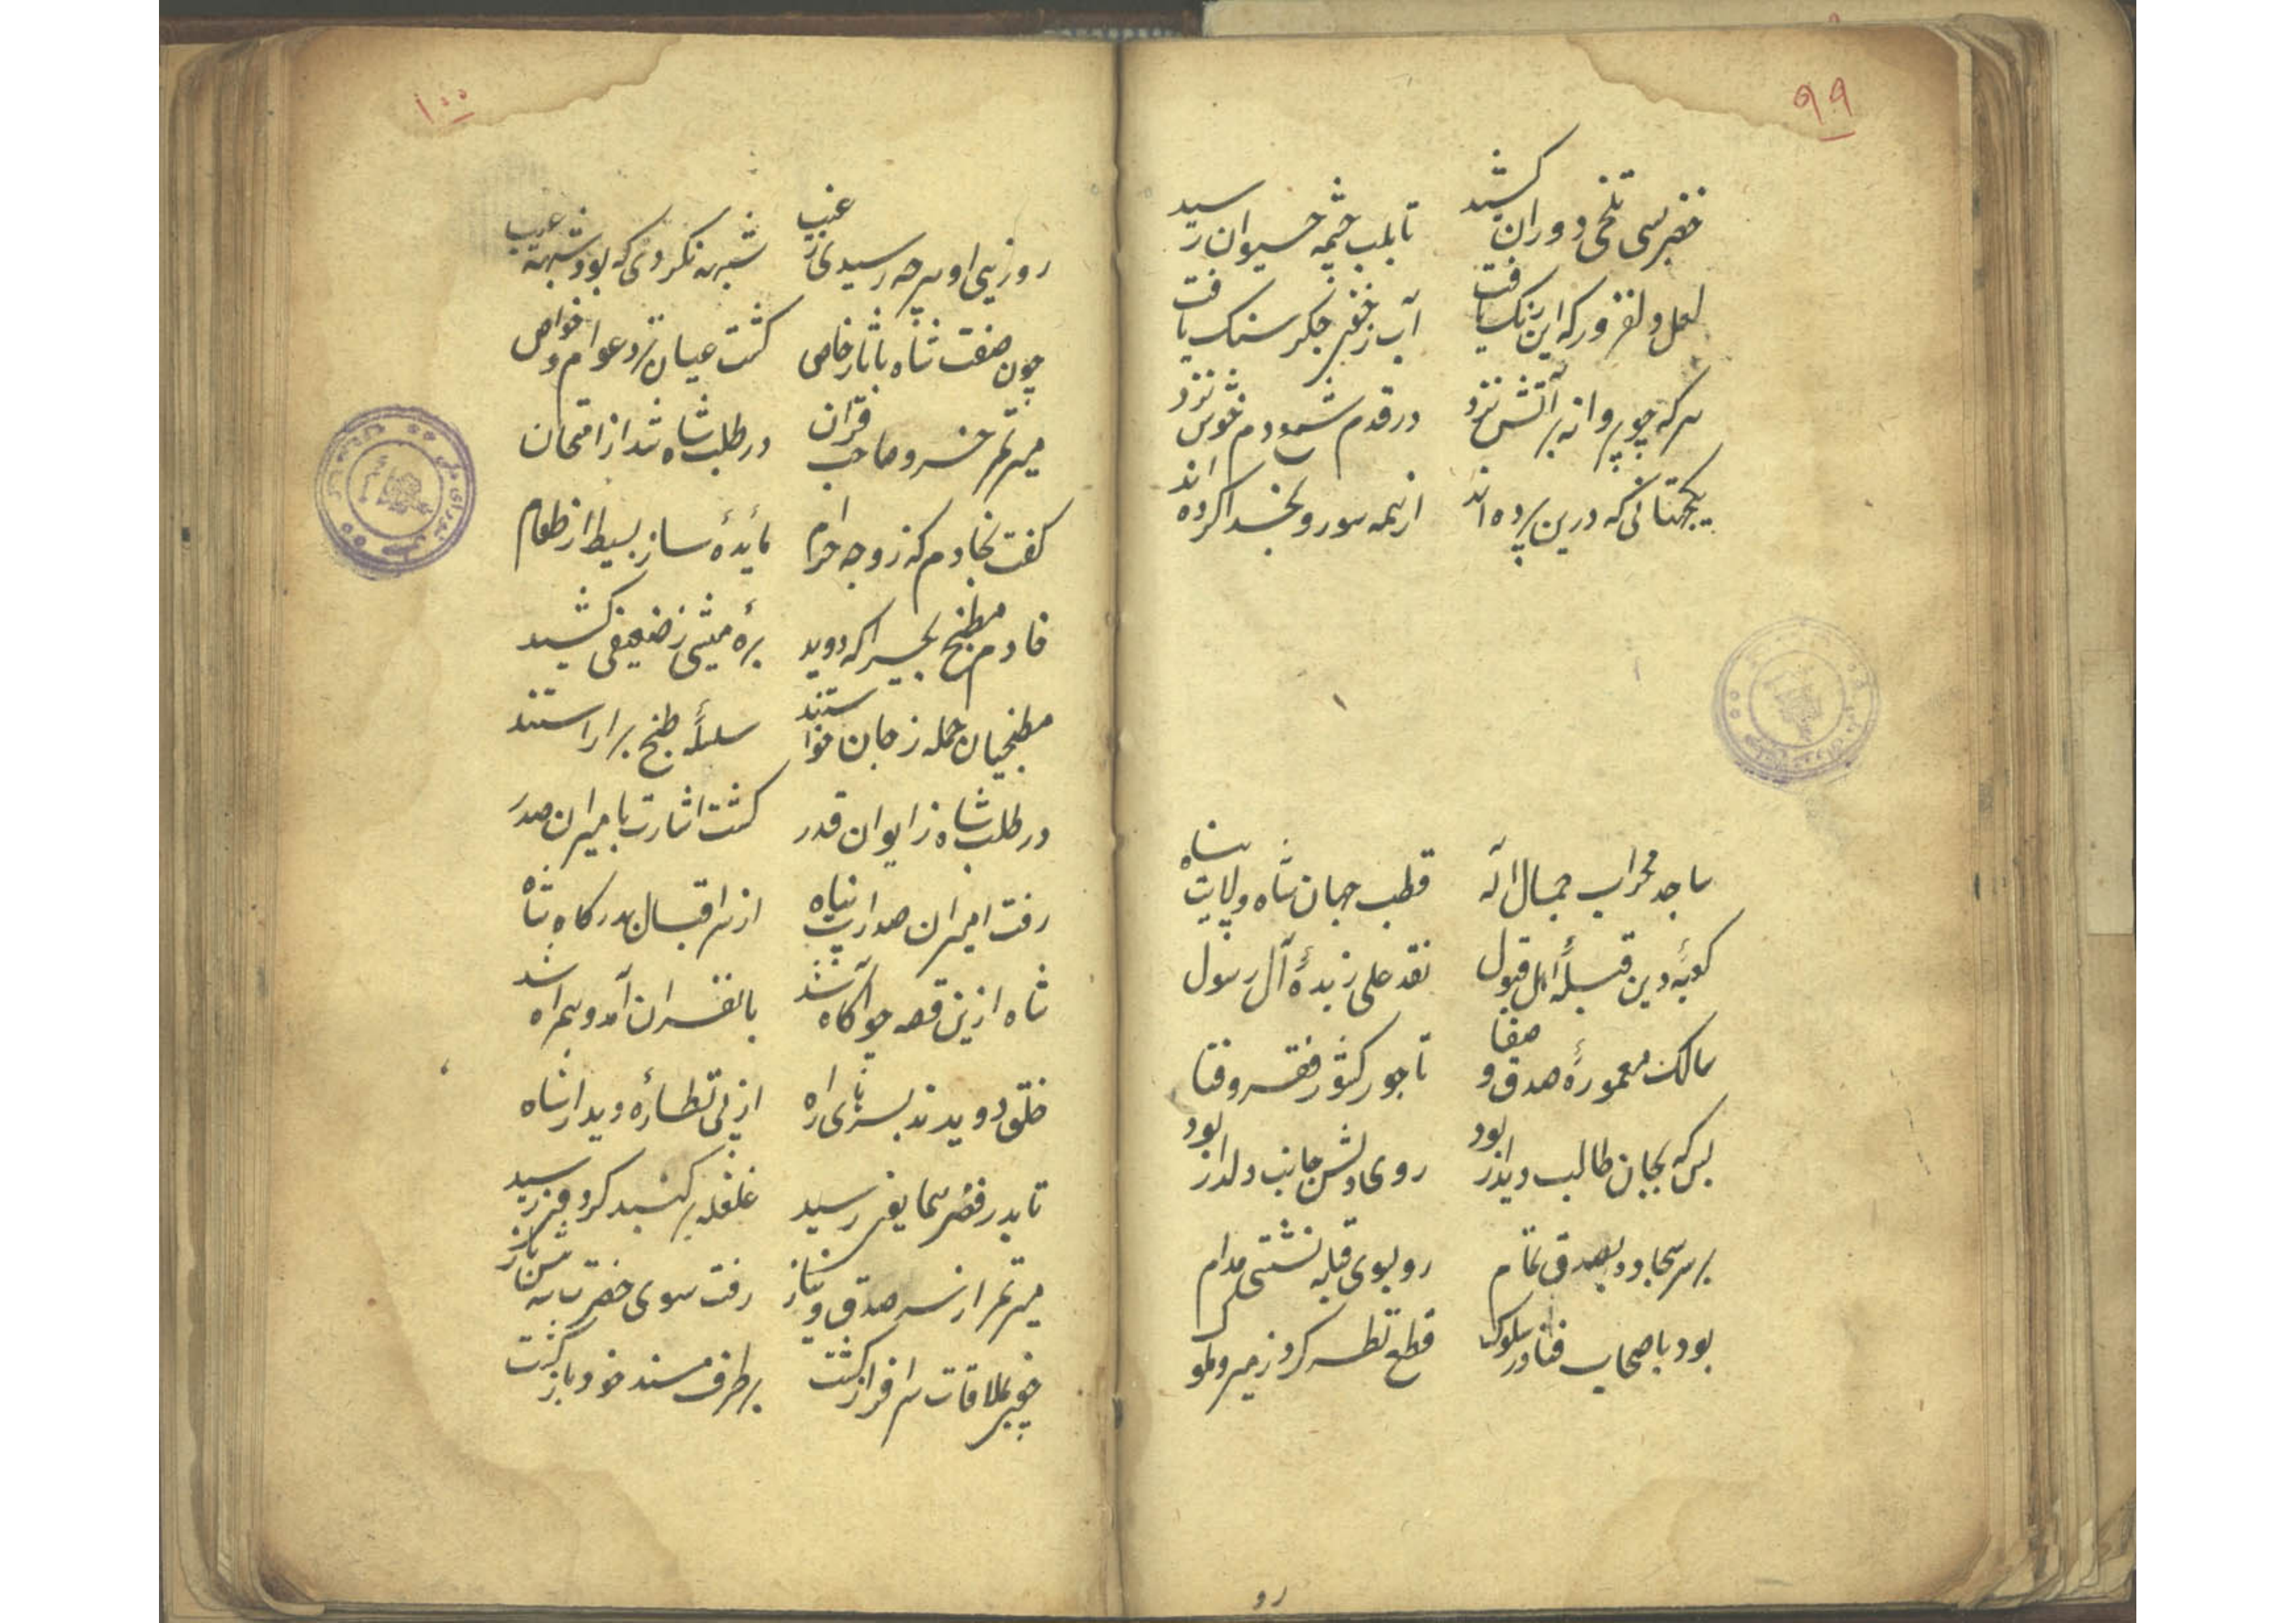 ۹۹
خضر بسی تلخی دوران کشید تا بلب چشمه حیوان رسید
لعل دلفروز که این رنگ یافت آب ز خون جگر سنک یافت
هر که چو پروانه بر آتش نزد در قدم شمع دم خوش نزد
یکجهتانی که درین پرده اند از همه سو رو بخدا کرده اند
ساجد محراب جمال اله قطب جهان شاه ولایت پناه
کعبهٔ دین قبلهٔ اهل قبول نقد علی زبدهٔ آل رسول
مالک معمورهٔ صدق و صفا تاجور کشور فقر و فنا
بس که بجان طالب دیدار بود روی دلش جانب دلدار بود
بر سر سجاده بصدق تمام رو بسوی قبله نشستی مدام
بود باصحاب فنا در سلوک قطع نظر کرد ز میر و ملوک
رو
۱۰۰
روزی او هر چه رسیدی ز غیب شبهه نکردی که بود شبهه عیب
چون صفت شاه باثار خاص کشت عیان نزد عوام و خواص
میر تمر خسرو صاحب قران در طلب شاه شد از امتحان
کفت بخادم که ز وجه حرام مایدهٔ ساز بسیط از طعام
خادم مطبخ بچراکه دوید برهٔ میشی ز ضعیفی کشید
مطبخیان جمله ز جان خواستند سلسلهٔ طبخ برآراستند
در طلب شاه ز ایوان قدر کشت اشارت بامیران صدر
رفت امیران صدارت پناه از سر اقبال بدرکاه شاه
شاه ازین قصه چو آکاه شد با نفران آمد و همراه شد
خلق دویدند بسر پای راه از پی نظارهٔ دیدار شاه
تا بدر قصر همایون رسید غلغله بر کنبد کردون رسید
میر تمر از سر صدق و نیاز رفت سوی حضرت شه پیشباز
چون بملاقات سرافراز کشت بر طرف مسند خود باز کشت